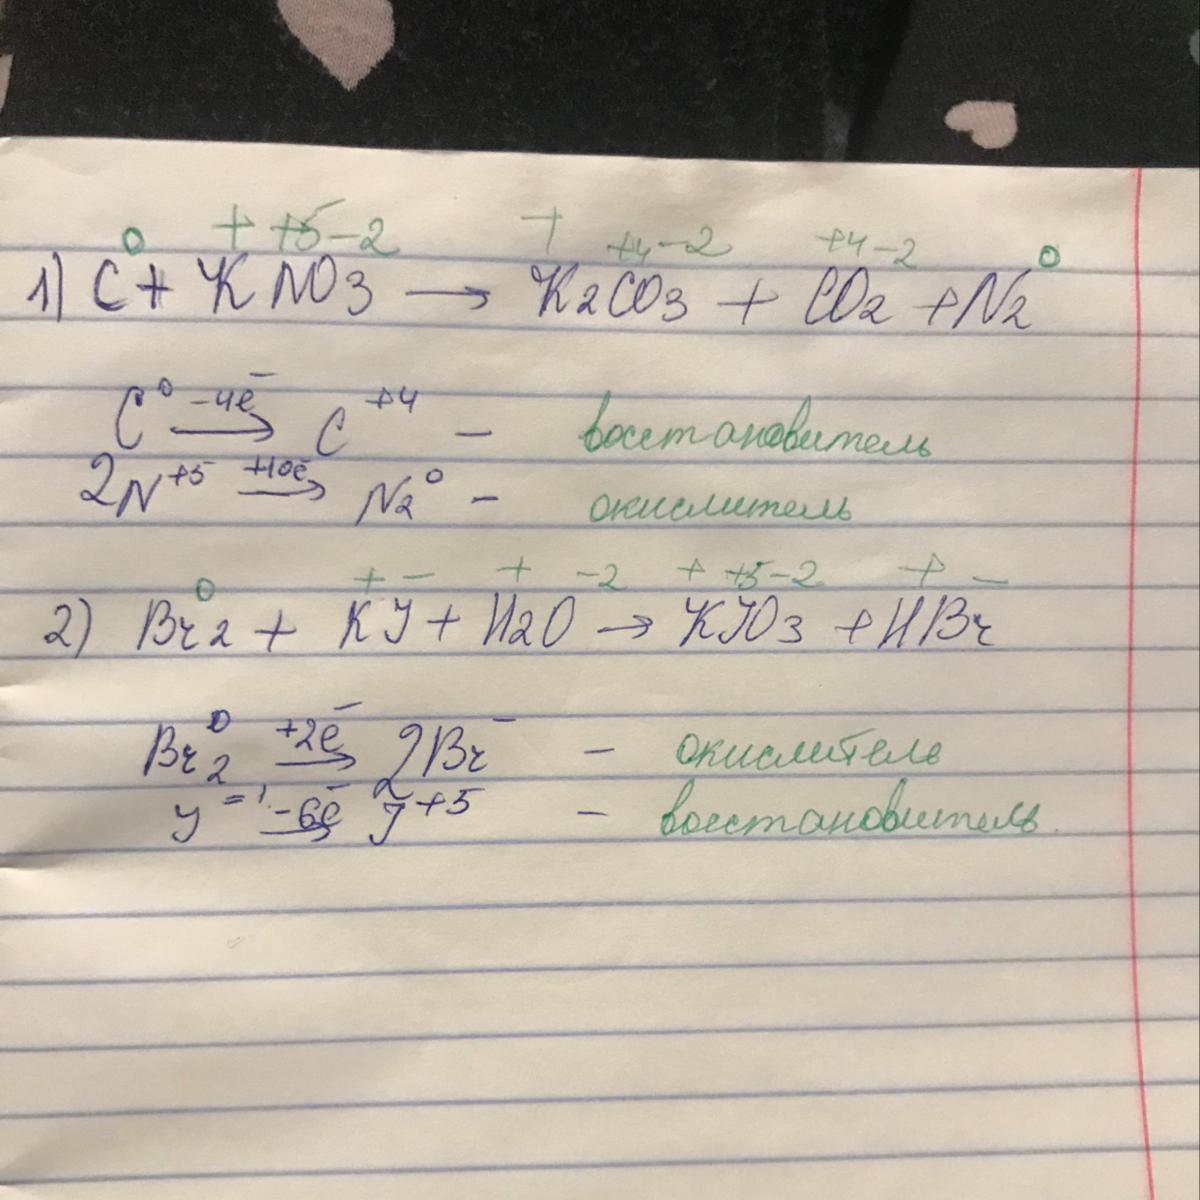 0 + +5 -2 + +4 -2 +4 -2 0
1) C + KNO3 → K2CO3 + CO2 + N2
C⁰ -4e̅→ C⁺⁴ - восстановитель
2N⁺⁵ +10e̅→ N2⁰ - окислитель
0 + - + -2 + +5 -2 + -
2) Br2 + KJ + H2O → KJO3 + HBr
Br2⁰ +2e̅→ 2Br⁻ - окислитель
J⁻¹ -6e̅→ J⁺⁵ - восстановитель